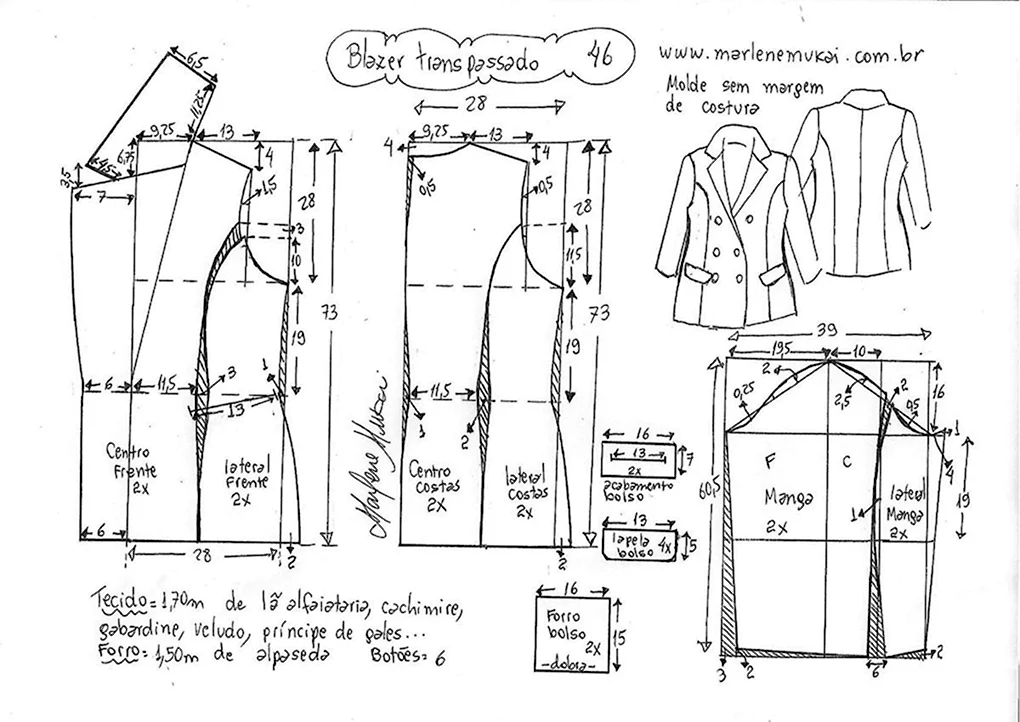 Blazer transpassado 46
www.marlenemukai.com.br
Molde sem margem
de costura
6,5
11,25
9,25
13
4,5
6,75
3,5
7
4
1,5
28
73
3
10
19
6
11,5
3
1
13
Centro
Frente
2x
lateral
Frente
2x
6
28
2
28
9,25
13
4
4
0,5
0,5
28
11,5
73
19
11,5
1
2
Centro
Costas
2x
lateral
Costas
2x
2
Marlene Mukai
16
13
7
2x
acabamento
bolso
13
lapela
bolso
4x
5
16
Forro
bolso
2x
-dobra-
15
39
19,5
10
2
0,25
2,5
2
0,5
16
1
4
60,5
19
F
C
Manga
2x
1
lateral
Manga
2x
3
2
6
2
Tecido=1,70m de lã alfaiataria, cachimire,
gabardine, veludo, príncipe de gales...
Forro=1,50m de alpaseda Botões=6